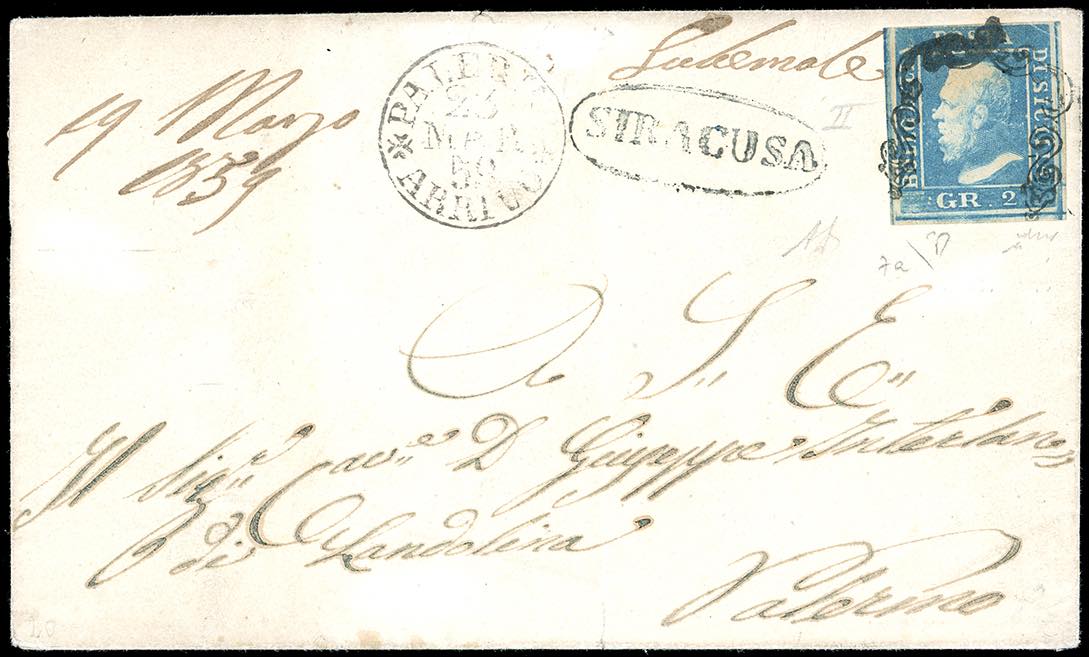 19 Marzo
1859
PALERMO
23
MAR
59
ARRIVO
SIRACUSA
POSTA
DI SICILIA
GR. 2
II
7a
A S. E.
Il Sig.r Cav.re D Giuseppe
di Landolina
Palermo